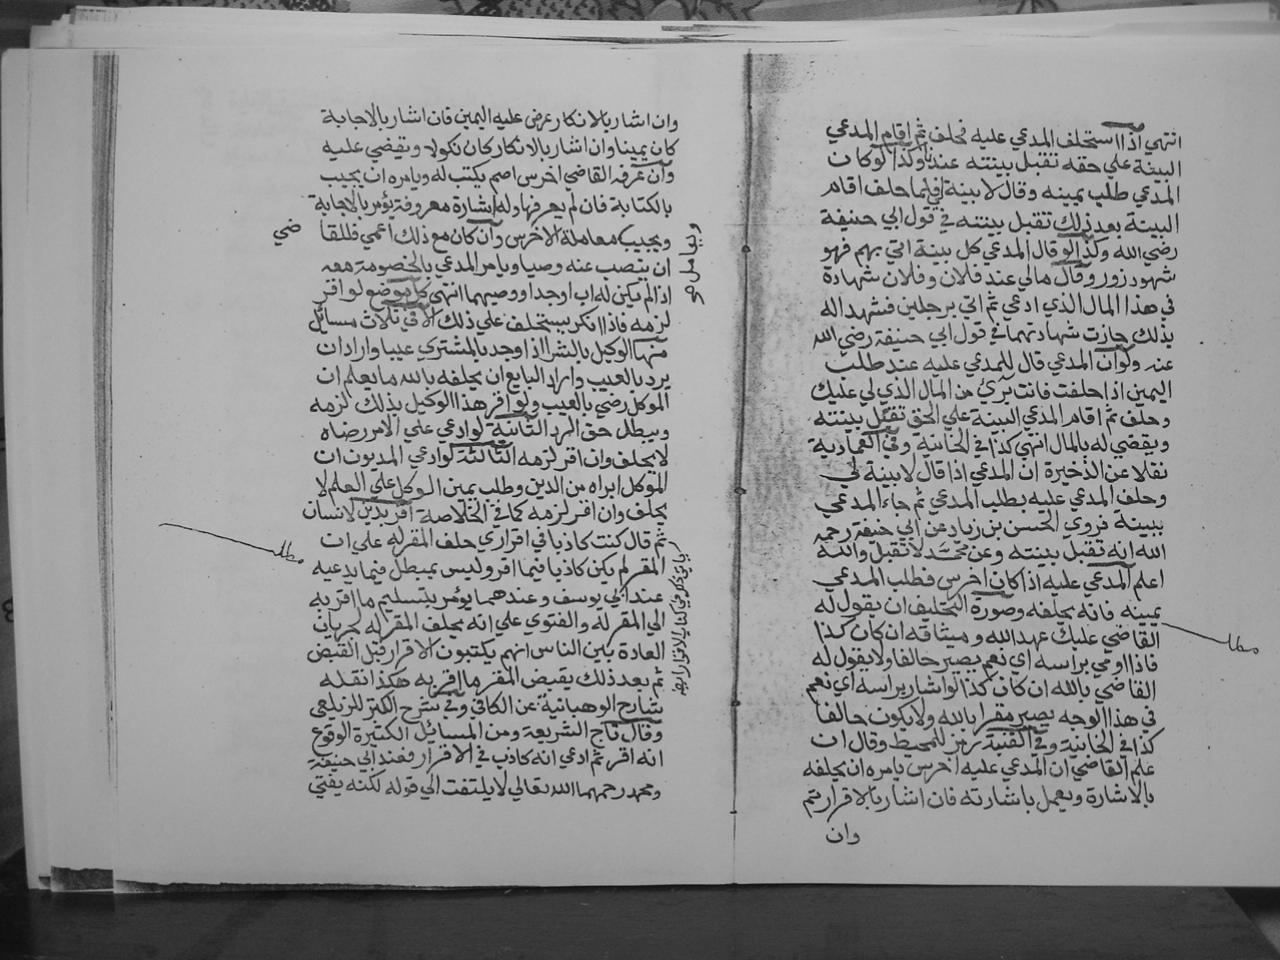 انتهي اذا استحلف المدعي عليه فحلف ثم اقام المدعي
البينة علي حقه تقبل بينته عندنا وكذا لو كان
المدعي طلب يمينه وقال لا بينة لي فلما حلف اقام
البينة بعد ذلك تقبل بينته في قول ابي حنيفة
رضي الله وكذا لو قال المدعي كل بينة اتي بهم فهو
شهود زور وقال مالي عند فلان وفلان شهادة
في هذا المال الذي ادعي ثم اتي برجلين فشهدا له
بذلك جازت شهادتهما في قول ابي حنيفة رضي الله
عنه ولو ان المدعي قال للمدعي عليه عند طلب
اليمين اذا حلفت فانت بريء من المال الذي لي عليك
وحلف ثم اقام المدعي البينة علي الحق تقبل بينته
ويقضي له بالمال انتهي كذا في الخانية وفي العمادية
نقلا عن الذخيرة ان المدعي اذا قال لا بينة لي
وحلف المدعي عليه بطلب المدعي ثم جاء المدعي
ببينة فروي الحسن بن زياد عن ابي حنيفة رحمه
الله انه تقبل بينته وعن محمد لا تقبل والله
اعلم المدعي عليه اذا كان اخرس فطلب المدعي
يمينه فانه يحلفه وصورة التحليف ان يقول له
القاضي عليك عهد الله وميثاقه ان كان كذا
فاذا اومي براسه اي نعم يصير حالفا ولا يقول له
القاضي بالله ان كان كذا لو اشار براسه اي نعم
في هذا الوجه يصير مقرا بالله ولا يكون حالفا
كذا في الخانية وفي القنية رمز للمحيط وقال ان
علم القاضي ان المدعي عليه اخرس يامره ان يحلفه
بالاشارة ويعمل باشارته فان اشار بالاقرار تم
وان
مطلب
وان اشار بالانكار عرض عليه اليمين فان اشار بالاجابة
كان يمينا وان اشار بالانكار كان نكولا ويقضي عليه
وان عرفه القاضي اخرس اصم يكتب له ويامره ان يجيب
بالكتابة فان لم يعرفها وله اشارة معروفة يؤمر بالاجابة
ويجيب معاملة الاخرس وان كان مع ذلك اعمي فللقا
ضي
ان ينصب عنه وصيا ويامر المدعي بالخصومة معه
اذا لم يكن له اب او جد او وصيهما انتهي كل موضع لو اقر
لزمه فاذا انكر يستحلف علي ذلك الا في ثلاث مسائل
منها الوكيل بالشراء اذا وجد بالمشتري عيبا واراد ان
يرد بالعيب واراد البايع ان يحلفه بالله ما يعلم ان
الموكل رضي بالعيب ولو اقر هذا الوكيل بذلك لزمه
ويبطل حق الرد الثانية لو ادعي علي الامر رضاه
لا يحلف وان اقر لزمه الثالثة لو ادعي المديون ان
الموكل ابراه من الدين وطلب يمين الوكيل علي العلم لا
يحلف وان اقر لزمه كما في الخلاصة اقر بدين لانسان
ثم قال كنت كاذبا في اقراري حلف المقر له علي ان
المقر لم يكن كاذبا فيما اقر وليس بمبطل فيما يدعيه
عند ابي يوسف وعندهما يؤمر بتسليم ما اقر به
الي المقر له والفتوي علي انه يحلف المقر له لجريان
العادة بين الناس انهم يكتبون الاقرار قبل القبض
ثم بعد ذلك يقبض المقر ما اقر به هكذا نقله
شارح الوهبانية عن الكافي وفي شرح الكنز للزيلعي
وقال تاج الشريعة ومن المسائل الكثيرة الوقوع
انه اقر ثم ادعي انه كاذب في الاقرار فعند ابي حنيفة
ومحمد رحمهما الله تعالي لا يلتفت الي قوله لكنه يفتي
ويعامل صح
مطلب